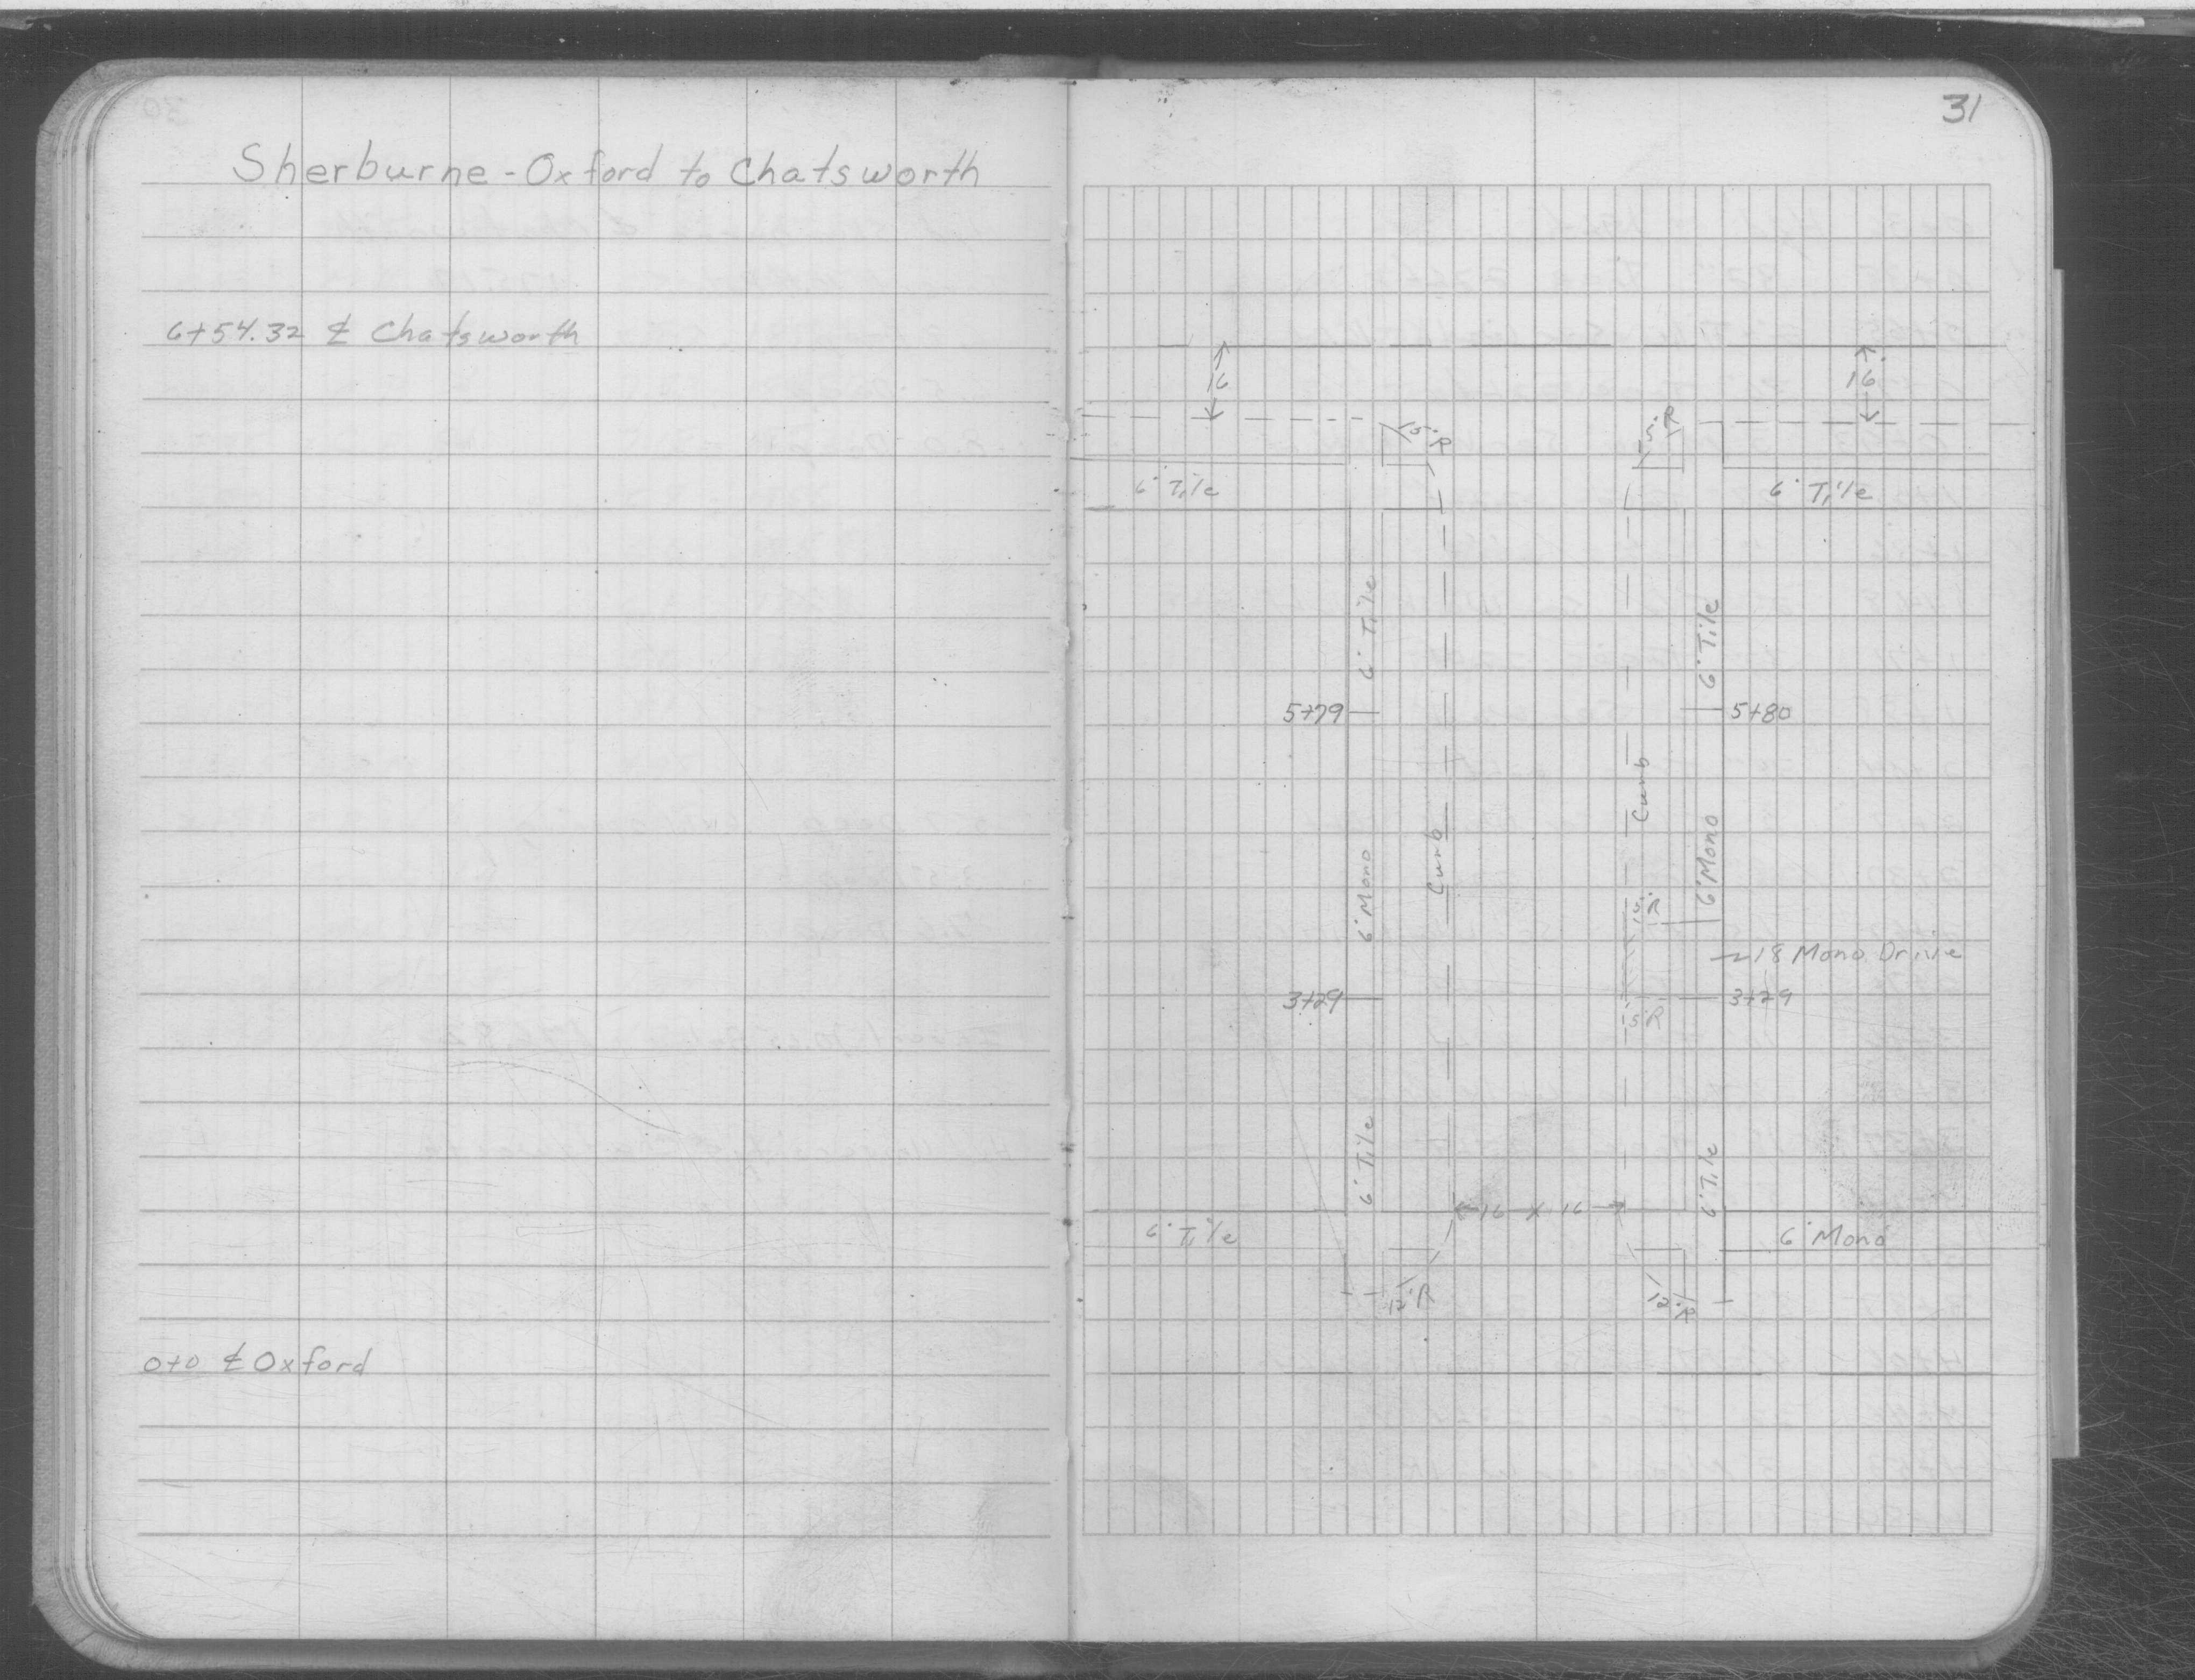 31
Sherburne - Oxford to Chatsworth
6+54.32 ℄ Chatsworth
16
16
15' R
15' R
6' Tile
6' Tile
6' Tile
6' Tile
5+79
5+80
Curb
Curb
6' Mono
6' Mono
5' R
18 Mono Drive
3+29
3+29
5' R
6' Tile
6' Tile
16 x 16
6' Tile
6' Mono
12' R
12' R
0+0 ℄ Oxford